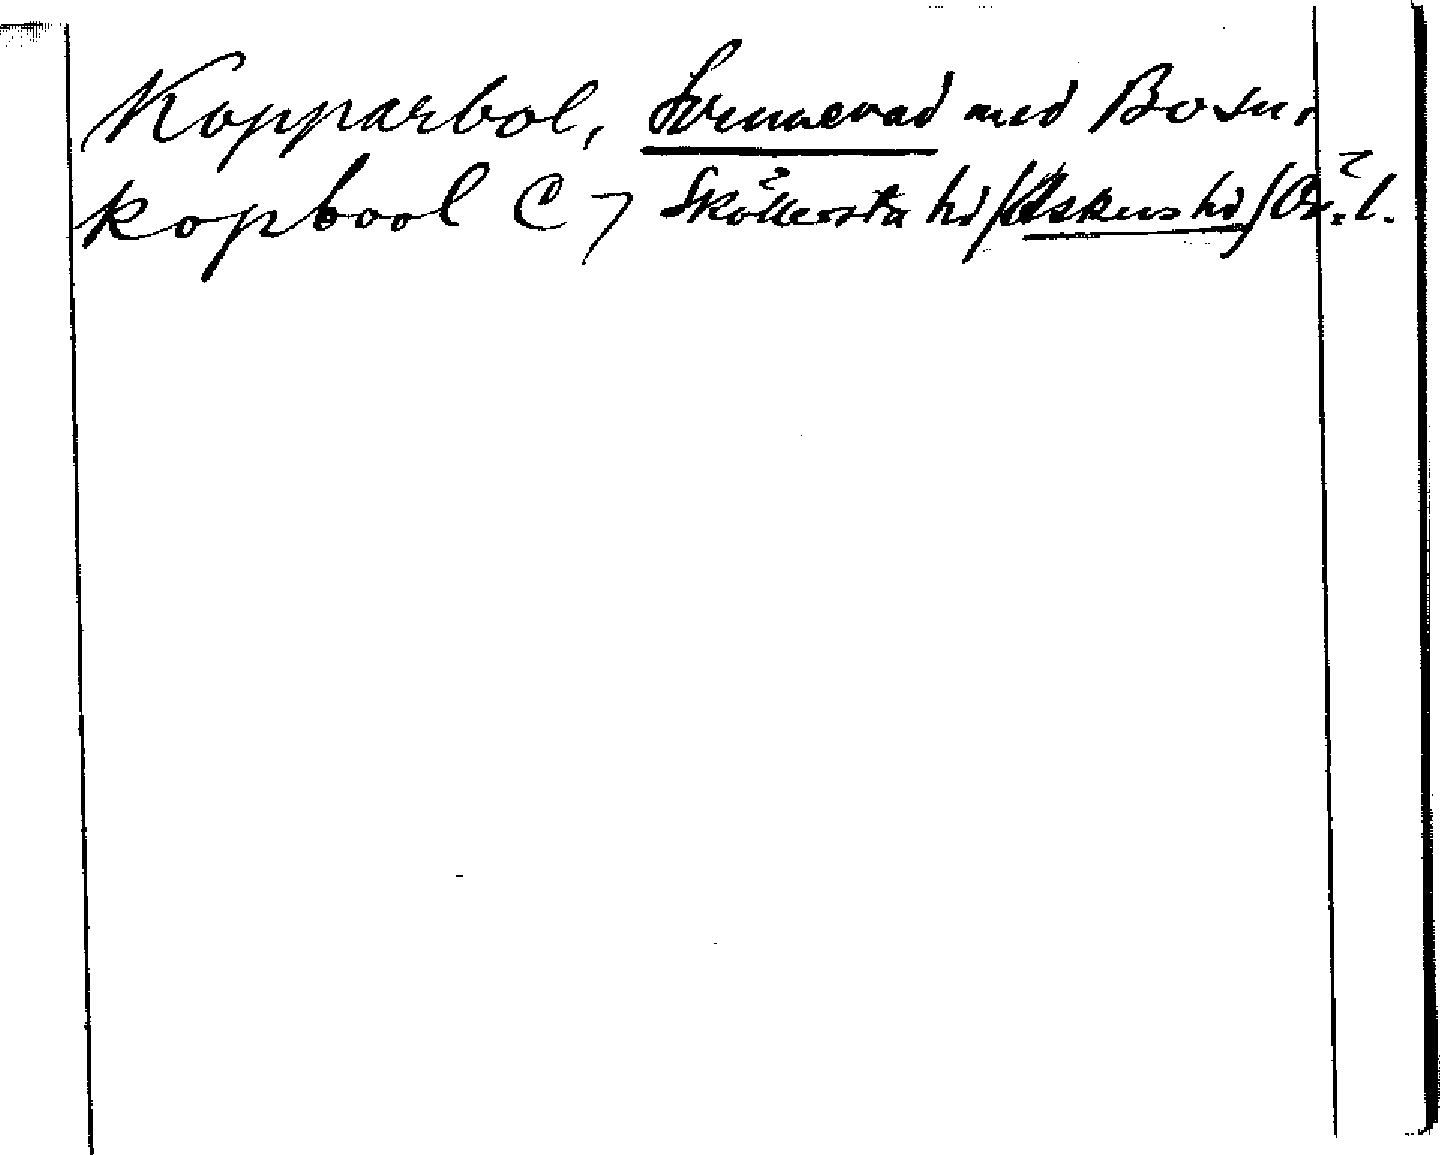 Kopparbol, Svennevad med Bosn.
kopbool C 7 Sköllersta hd/Askers hd/Ör. l.